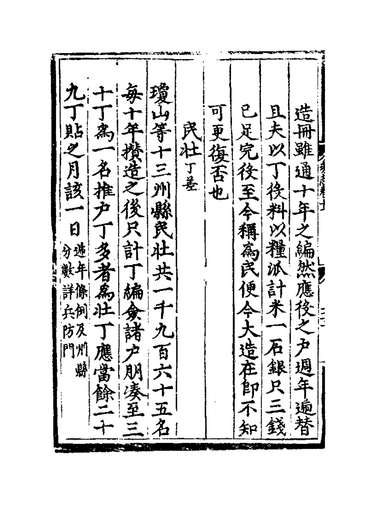 造冊雖通十年之編然應役之户週年遍替
且夫以丁役料以糧派計米一石銀只三錢
已足完役至今稱為民便今大造在即不知
可更復否也
民壯丁差
瓊山等十三州縣民壯共一千九百六十五名
每十年攢造之後只計丁編僉諸户朋湊至三
十丁為一名推户丁多者為壯丁應當餘二十
九丁貼之月該一日遇年條例及州縣
分數詳兵防門